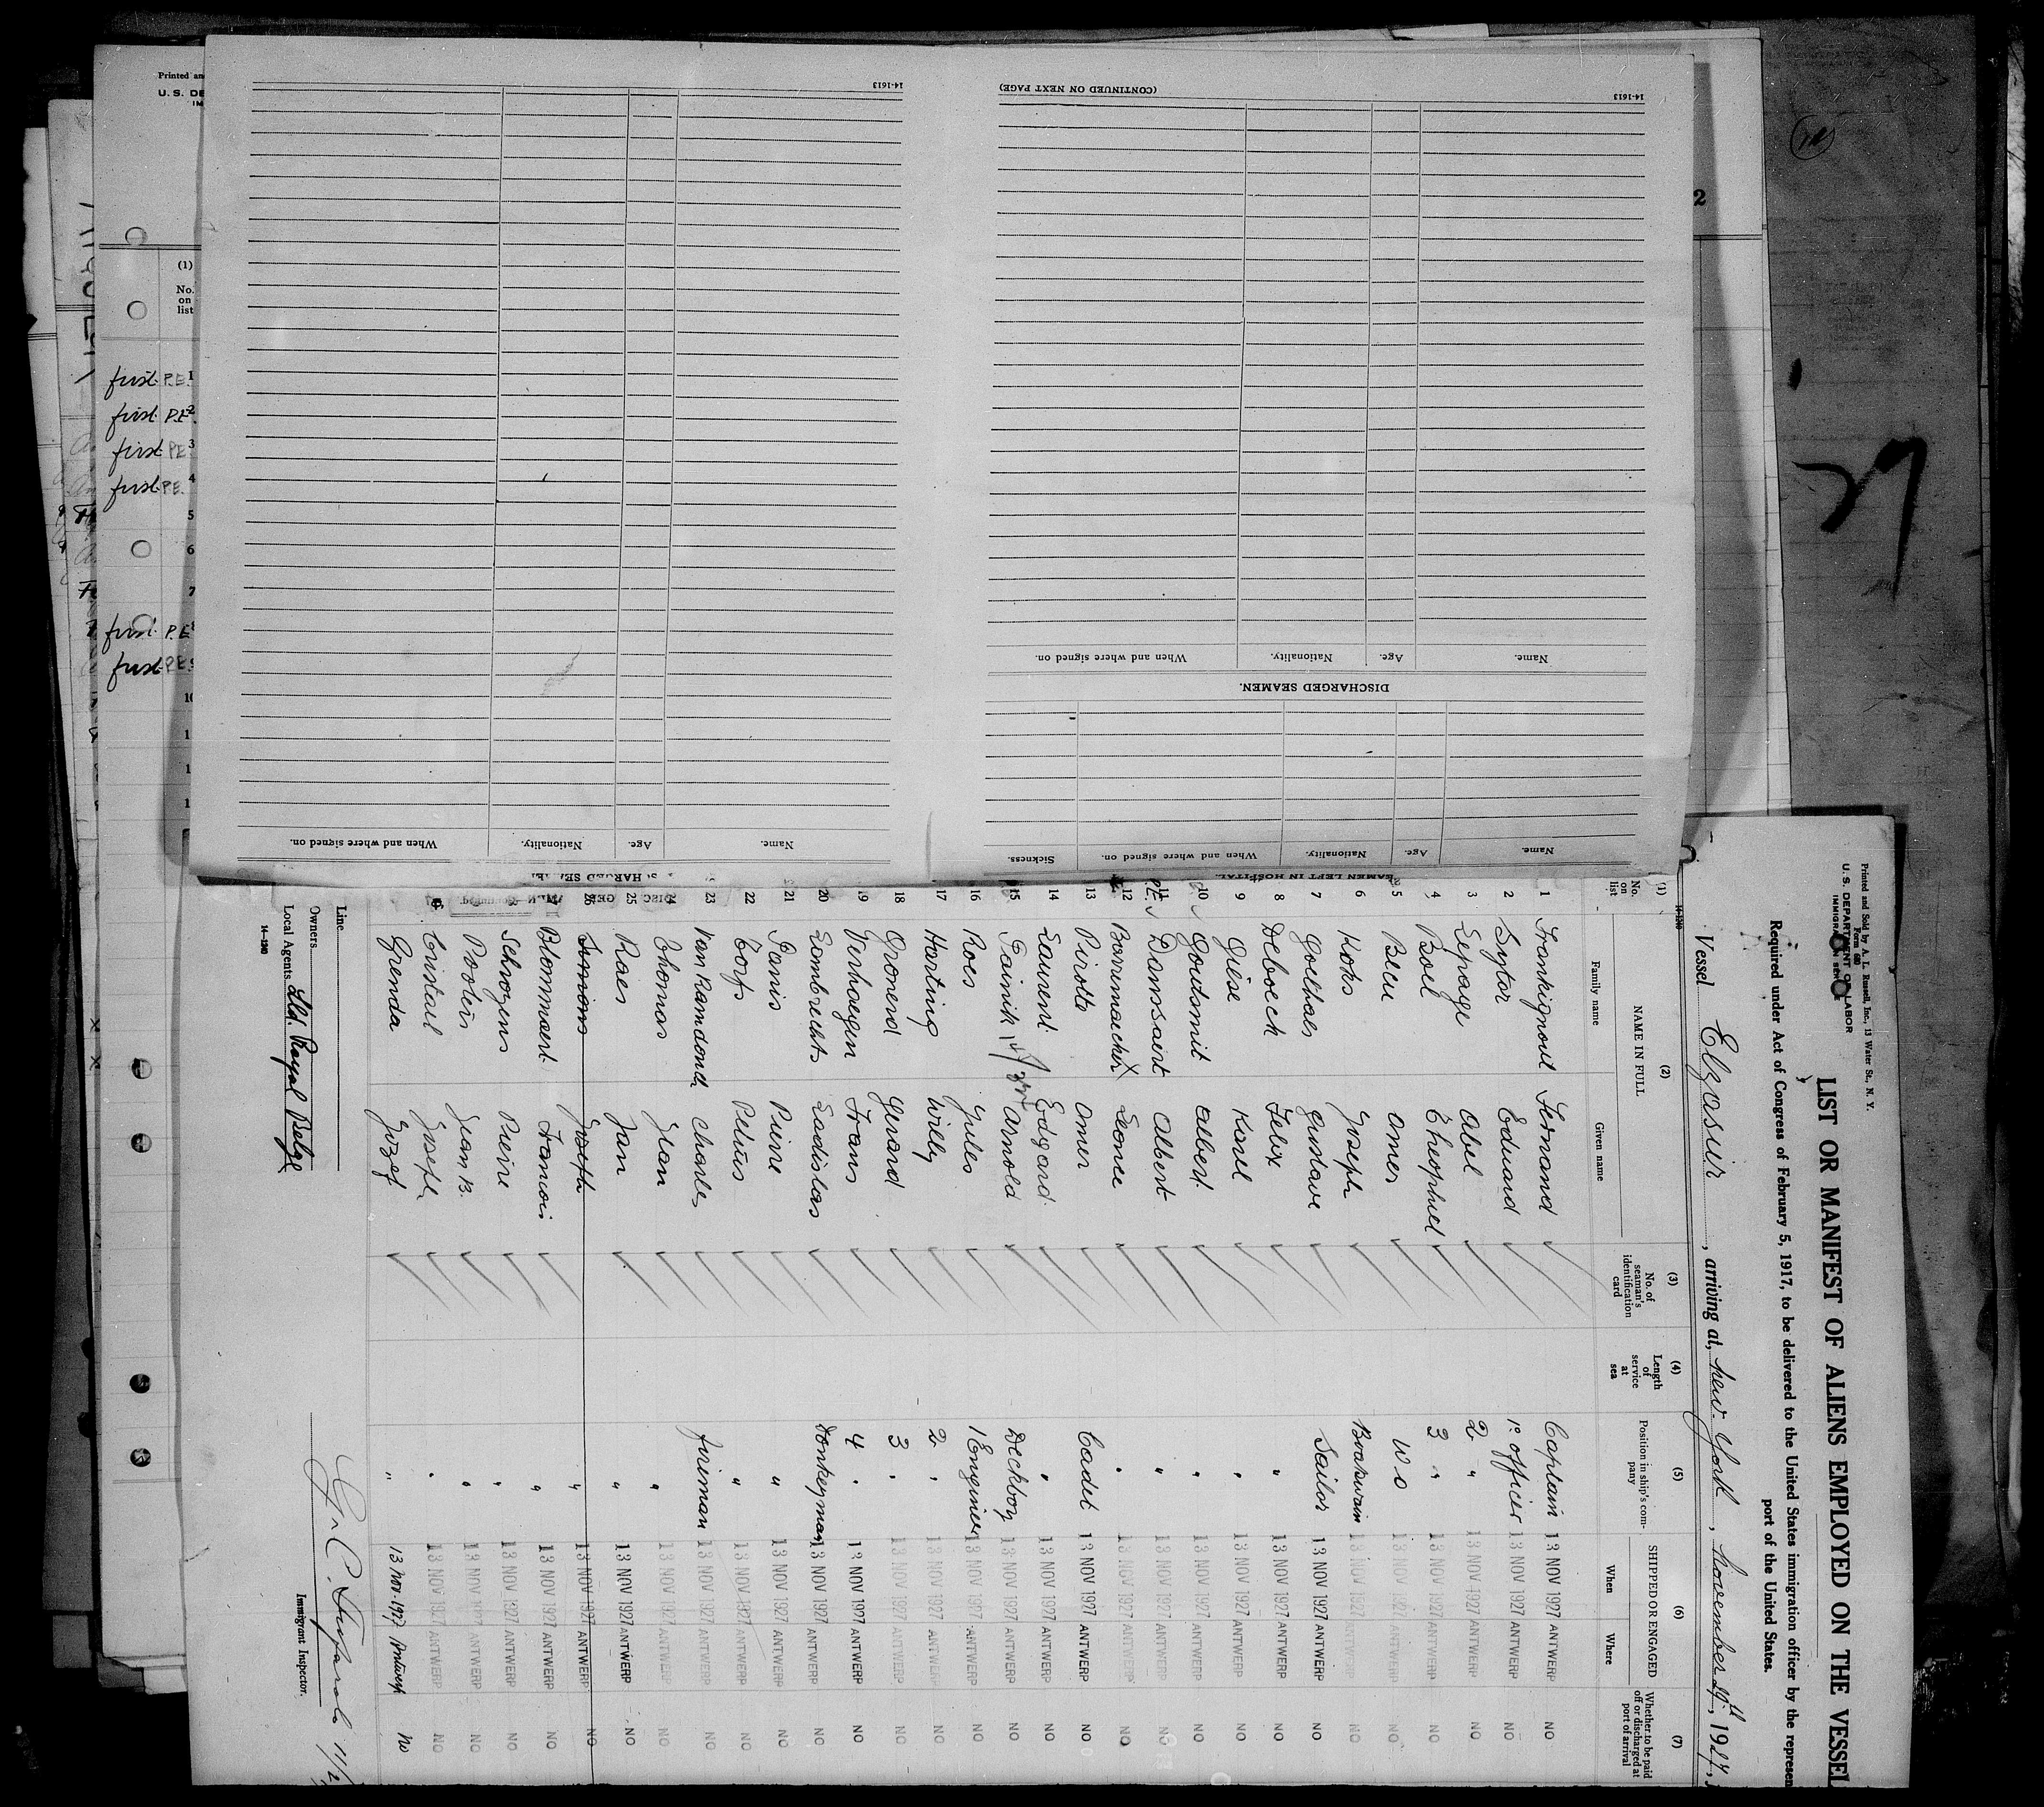 Printed and Sold by A. L. Russell, Inc., 13 Water St., N. Y.
Form 680
U. S. DEPARTMENT OF LABOR
IMMIGRATION SERVICE
LIST OR MANIFEST OF ALIENS EMPLOYED ON THE VESSEL
Required under Act of Congress of February 5, 1917, to be delivered to the United States immigration officer by the represen
port of the United States.
Vessel Elzasier, arriving at, New York, November 29th, 1927,
14-1240
(1) (2) (3) (4) (5) (6) (7)
No. on list NAME IN FULL No. of seaman's identification card Length of service at sea Position in ship's company SHIPPED OR ENGAGED Whether to be paid off or discharged at port of arrival
Family name Given name When Where
1 Frankignoul Fernand Captain 13 NOV 1927 ANTWERP NO
2 Sytor Eduard 1e officer 13 NOV 1927 ANTWERP NO
3 Lepage Abel 2 " 13 NOV 1927 ANTWERP NO
4 Boel Theophiel 3 " 13 NOV 1927 ANTWERP NO
5 Beeu Omer W O 13 NOV 1927 ANTWERP NO
6 Koks Joseph Boatswain 13 NOV 1927 ANTWERP NO
7 Goethals Gustave Sailor 13 NOV 1927 ANTWERP NO
8 Deboeck Felix " 13 NOV 1927 ANTWERP NO
9 Gilse Karel " 13 NOV 1927 ANTWERP NO
10 Goutsmit Albert " 13 NOV 1927 ANTWERP NO
11 Damsaert Albert " 13 NOV 1927 ANTWERP NO
12 Barremaecker Leonce " 13 NOV 1927 ANTWERP NO
13 Pirotte Omer Cadet 13 NOV 1927 ANTWERP NO
14 Laurent Edgard " 13 NOV 1927 ANTWERP NO
15 Arnold Deckboy 13 NOV 1927 ANTWERP NO
16 Roes Jules 1 Engineer 13 NOV 1927 ANTWERP NO
17 Harting Willy 2 " 13 NOV 1927 ANTWERP NO
18 Gronerd Gerard 3 " 13 NOV 1927 ANTWERP NO
19 Verhaegen Frans 4 " 13 NOV 1927 ANTWERP NO
20 Lambrechts Ladislas Donkeyman 13 NOV 1927 ANTWERP NO
21 Panis Pierre " 13 NOV 1927 ANTWERP NO
22 Corfs Petrus " 13 NOV 1927 ANTWERP NO
23 Van Ramdonck Charles fireman 13 NOV 1927 ANTWERP NO
24 Thomas Jean " 13 NOV 1927 ANTWERP NO
25 Raes Jan " 13 NOV 1927 ANTWERP NO
26 Simons Joseph " 13 NOV 1927 ANTWERP NO
27 Blommaert Francois " 13 NOV 1927 ANTWERP NO
28 Schroyens Pierre " 13 NOV 1927 ANTWERP NO
Pooters Jean B. " 13 NOV 1927 ANTWERP NO
Cristael Joseph " 13 NOV 1927 ANTWERP NO
Grenda Jozef " 13 Nov-1927 Antwerp No
Line
Owners
Local Agents Lld. Royal Belge
14-1240
Immigrant Inspector.
SEAMEN LEFT IN HOSPITAL.
Name. Age. Nationality. When and where signed on. Sickness.
DISCHARGED SEAMEN.
Name. Age. Nationality. When and where signed on.
(CONTINUED ON NEXT PAGE)
14-1613
Name. Age. Nationality. When and where signed on.
14-1613
Printed an
U. S. DE
IM
(1)
No. on list
first P.E. 1
first P.E. 2
first P.E. 3
first P.E. 4
5
6
7
first P.E. 8
first P.E. 9
2